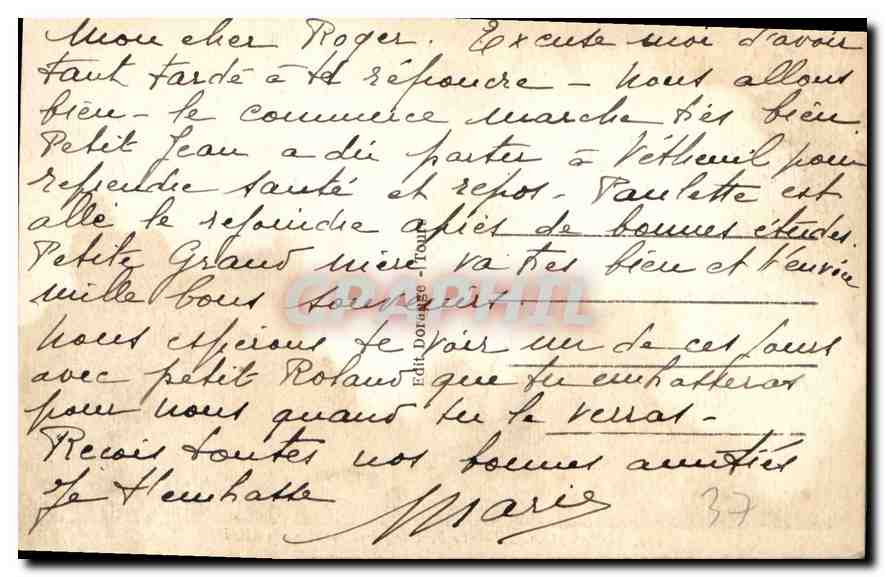 Mon cher Roger. Excuse moi d'avoir
tant tardé à te répondre - nous allons
bien - le commerce marche très bien
Petit Jean a dû partir à Vétheuil pour
reprendre santé et repos - Paulette est
allé le rejoindre après de bonnes études.
Petite Grand mère va très bien et t'envoie
mille bons souvenirs.
Nous espérons te voir un de ces jours
avec petit Roland que tu embasseras
pour nous quand tu le verras -
Recois toutes nos bonnes amitiés
Je t'embasse
Marie
37
Edit Dorange - Tours
CPAPHIL